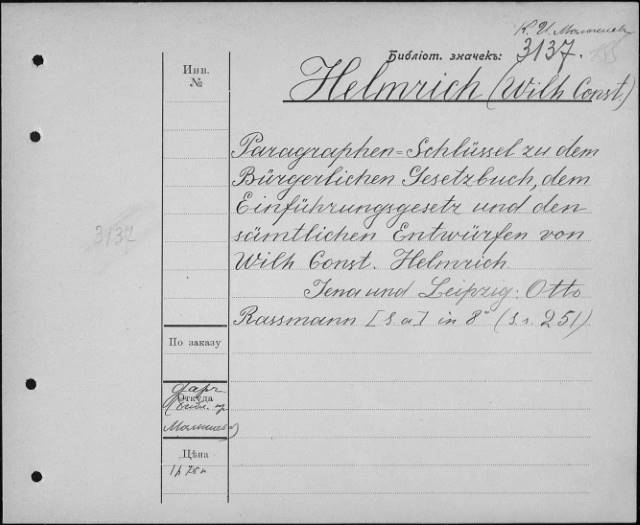 К. И. Малышев
Библіот. значекъ: 3137.
Инв.
№
Helmrich (Wilh Const.)
Paragraphen=Schlüssel zu dem
Bürgerlichen Gesetzbuch, dem
Einführungsgesetz und den
sämtlichen Entwürfen von
Wilh Const. Helmrich.
Jena und Leipzig: Otto
Rassmann [s. a] in 8° (s. 251)
3137
По заказу
Откуда
даръ
Малышева)
Цѣна
1 р 75 к